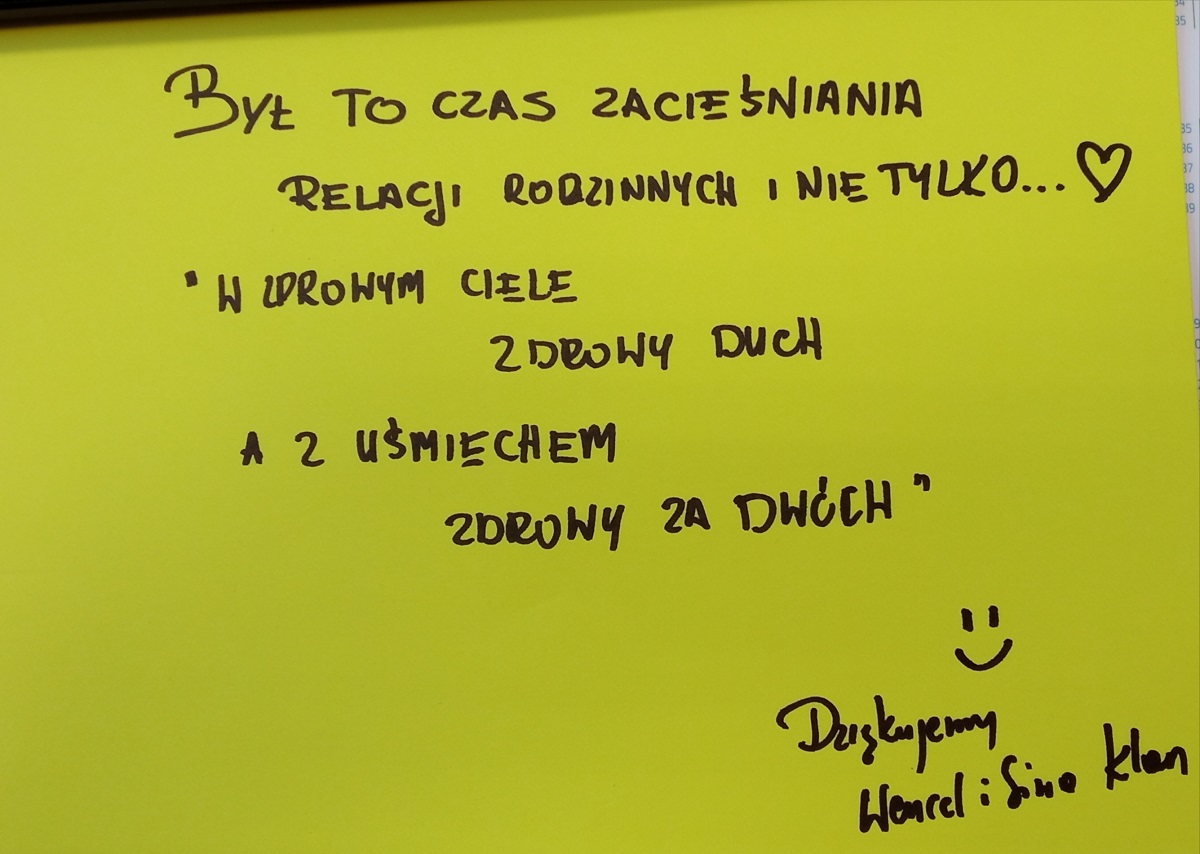 BYŁ TO CZAS ZACIEŚNIANIA
RELACJI RODZINNYCH I NIE TYLKO... ♡
"W ZDROWYM CIELE
ZDROWY DUCH
A Z UŚMIECHEM
ZDROWY ZA DWÓCH"
Dziękujemy
i Klan